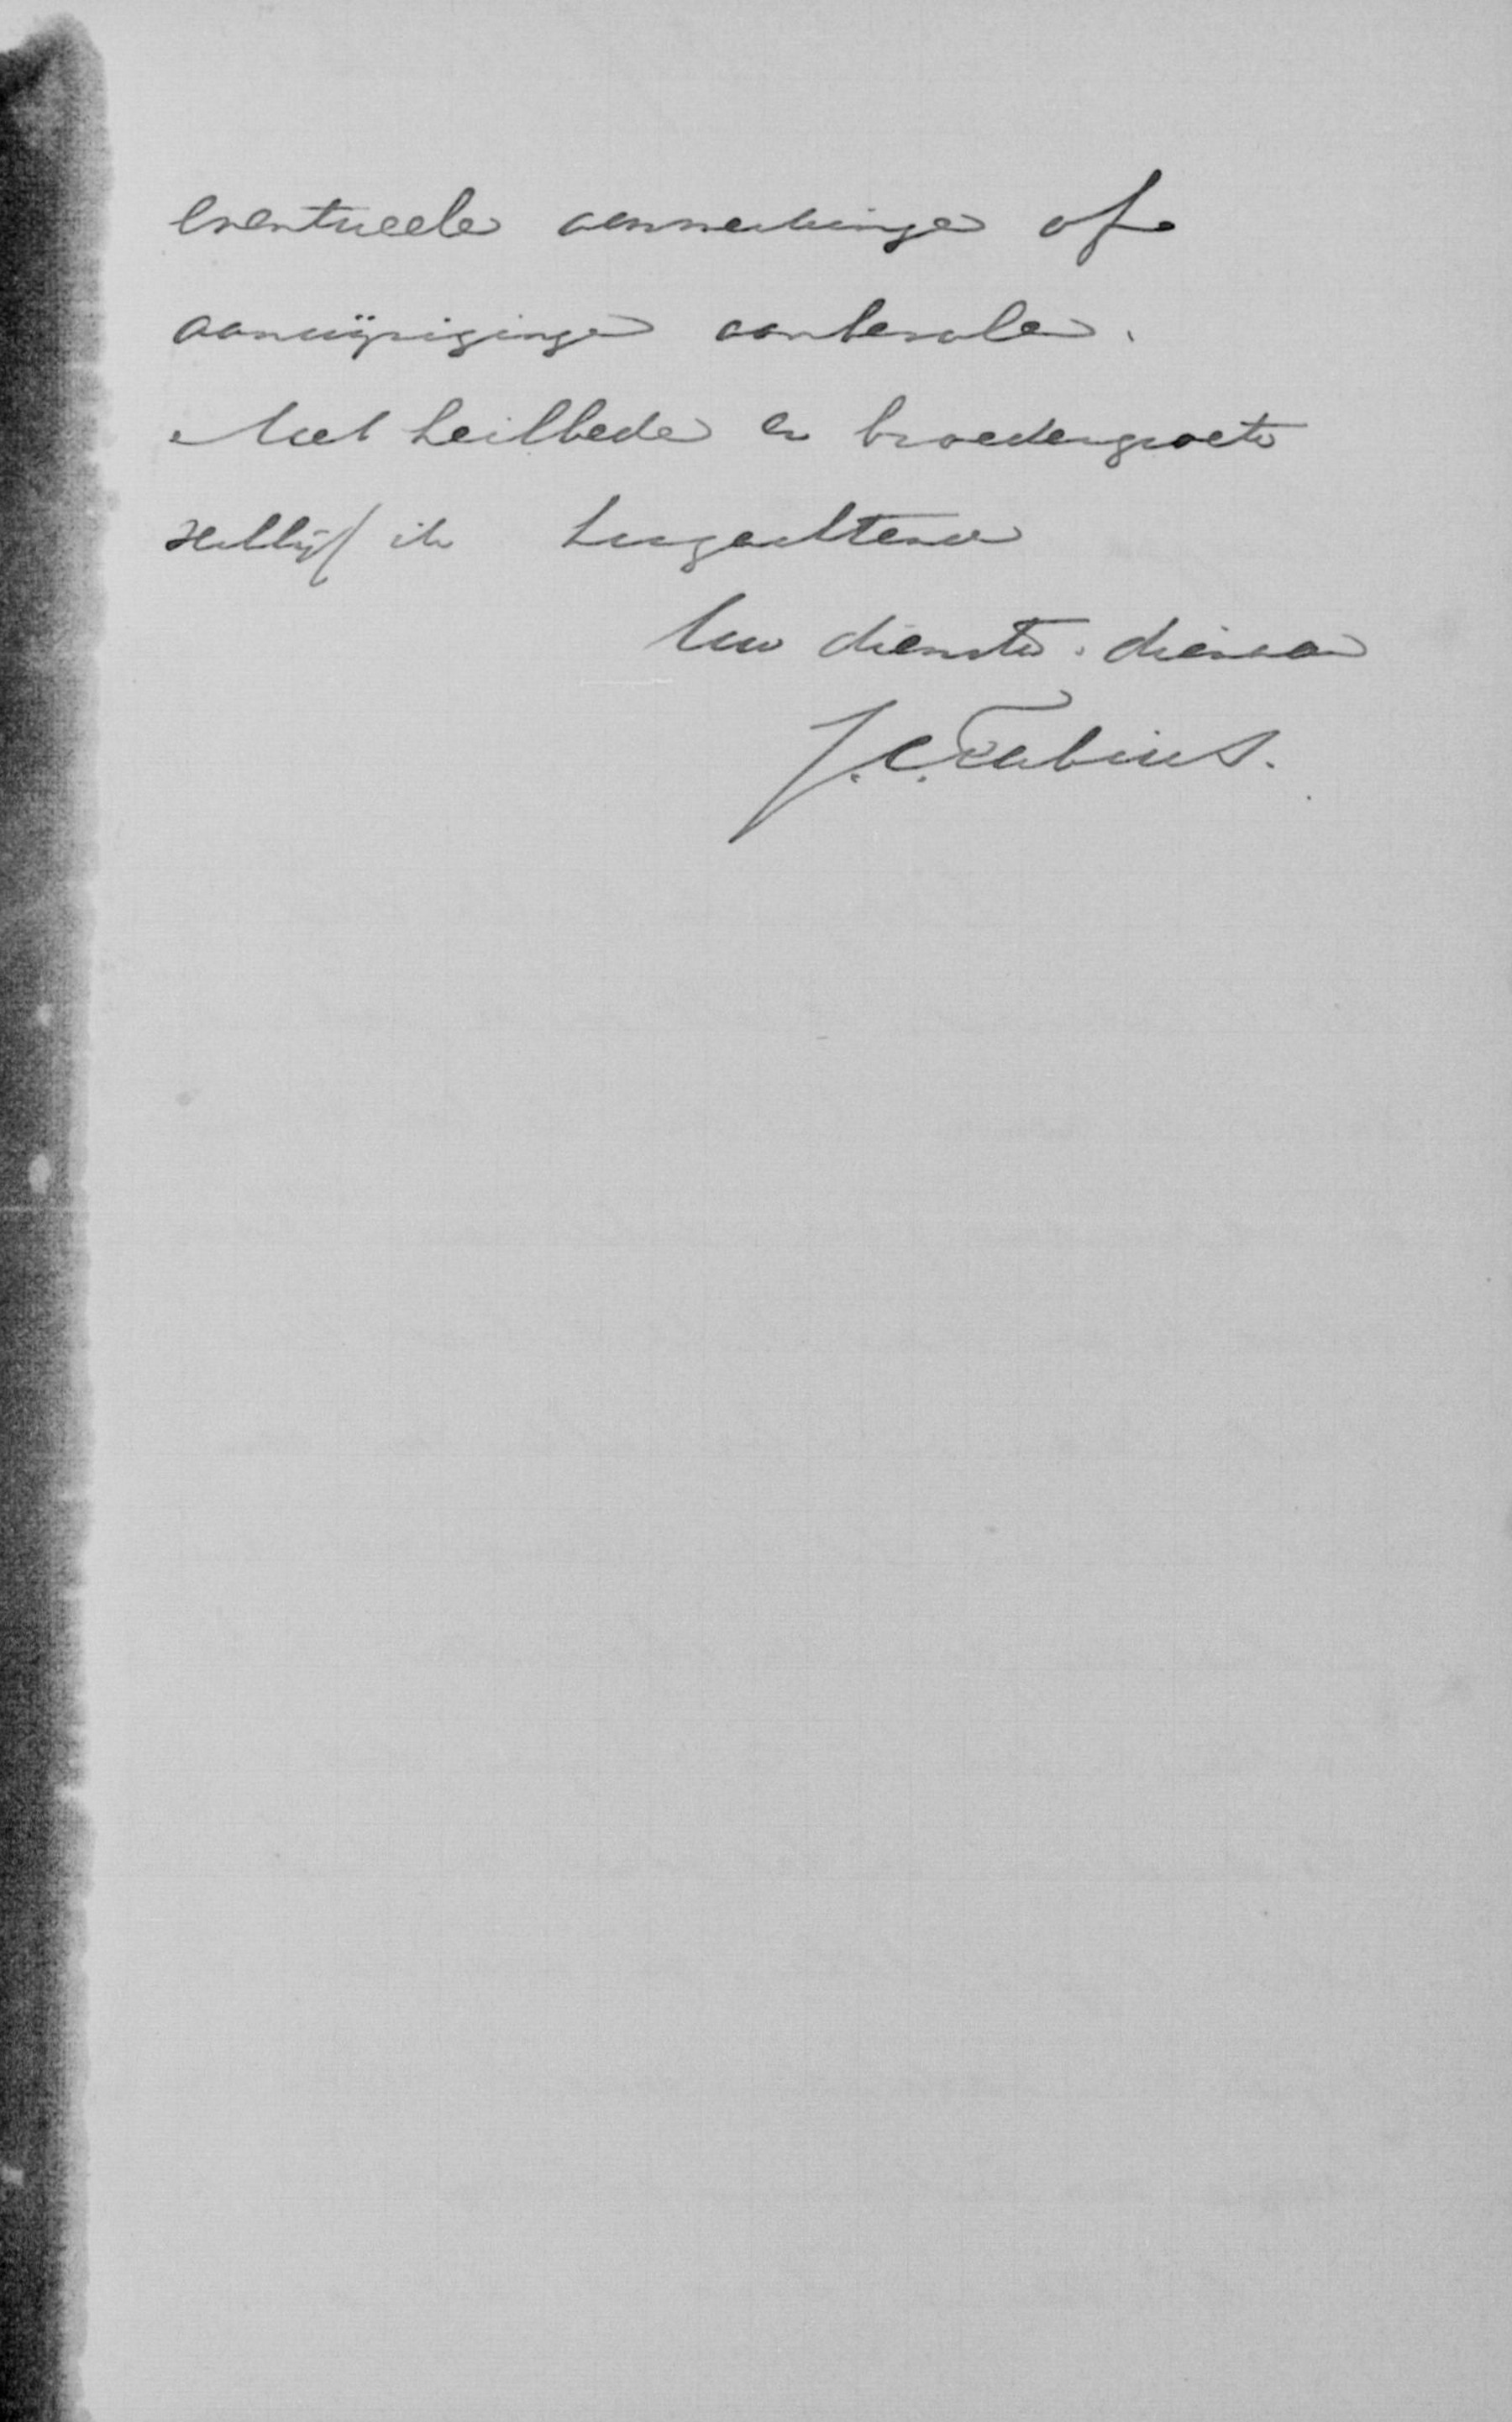 eventueele aanmerkingen of
aanwijzigingen aanbevolen.
Met heilbede en broedergroet
verblijf ik hoogachtend
Uw dienstw. dienaar
J.C. Fabius.